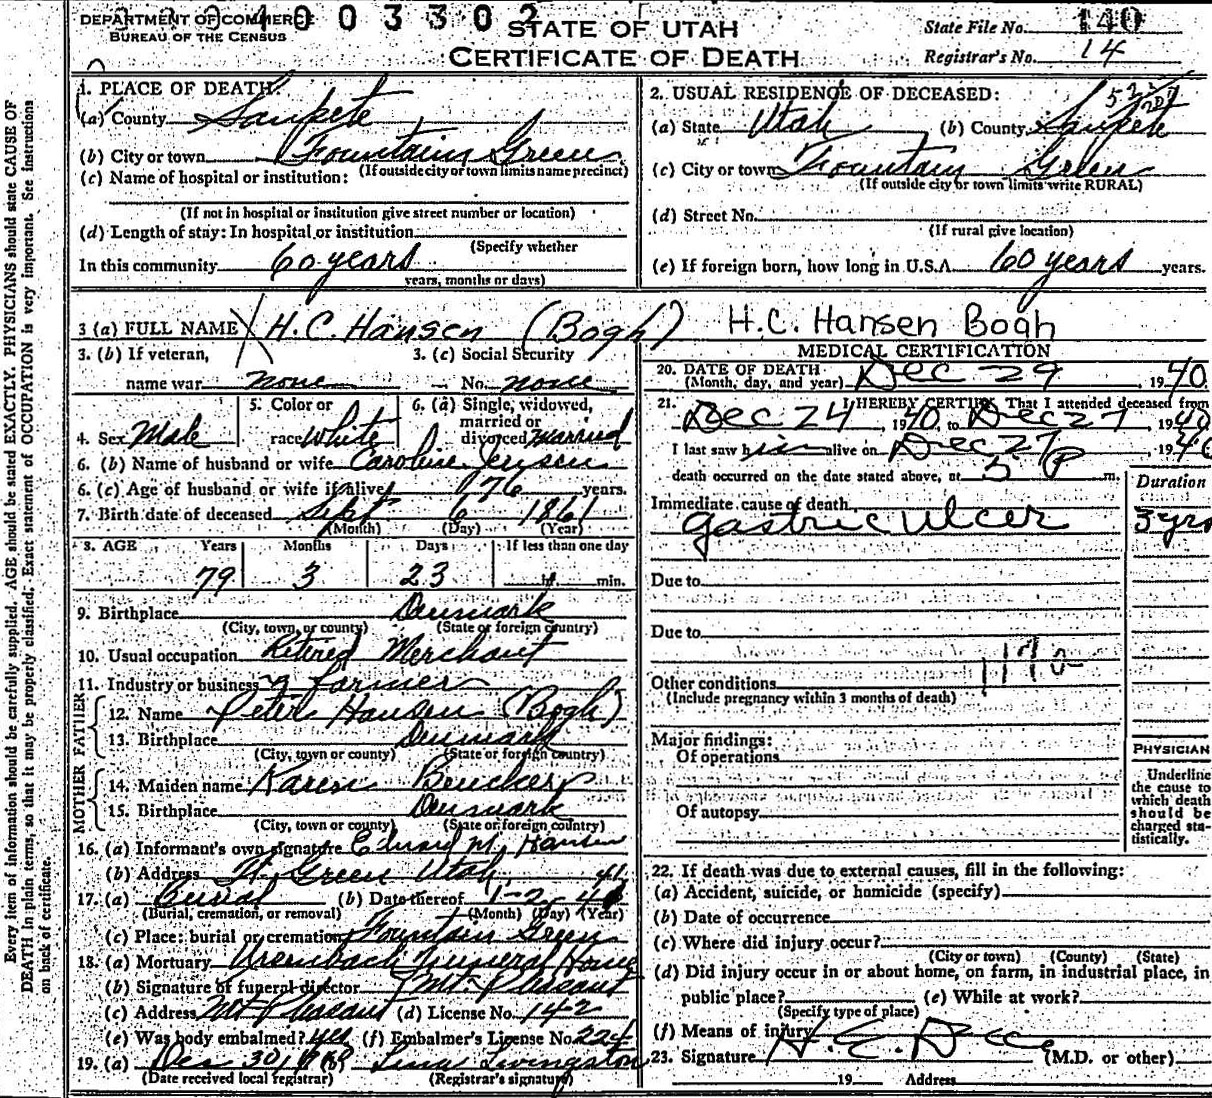 DEPARTMENT OF COMMERCE
BUREAU OF THE CENSUS
4 0 0 3 3 0 2
STATE OF UTAH
CERTIFICATE OF DEATH
State File No. 140
Registrar's No. 14
Every item of information should be carefully supplied. AGE should be stated EXACTLY. PHYSICIANS should state CAUSE OF
DEATH in plain terms, so that it may be properly classified. Exact statement of OCCUPATION is very important. See instructions
on back of certificate.
1. PLACE OF DEATH:
(a) County Sanpete
(b) City or town Fountain Green
(If outside city or town limits name precinct)
(c) Name of hospital or institution:
(If not in hospital or institution give street number or location)
(d) Length of stay: In hospital or institution
(Specify whether
In this community 60 years
years, months or days)
2. USUAL RESIDENCE OF DECEASED:
(a) State Utah (b) County Sanpete
(c) City or town Fountain Green
(If outside city or town limits write RURAL)
(d) Street No.
(If rural give location)
(e) If foreign born, how long in U.S.A. 60 years years.
3 (a) FULL NAME H.C. Hansen (Bogh) H.C. Hansen Bogh
3. (b) If veteran,
name war none
3. (c) Social Security
No. none
4. Sex Male
5. Color or
race White
6. (a) Single, widowed,
married or
divorced married
6. (b) Name of husband or wife Caroline Jensen
6. (c) Age of husband or wife if alive 76 years.
7. Birth date of deceased Sept 6 1861
(Month) (Day) (Year)
8. AGE Years Months Days If less than one day
79 3 23 hr. min.
9. Birthplace Denmark
(City, town, or county) (State or foreign country)
10. Usual occupation Retired Merchant
11. Industry or business & farmer
FATHER
12. Name Peter Hansen (Bogh)
13. Birthplace Denmark
(City, town or county) (State or foreign country)
MOTHER
14. Maiden name Karen
15. Birthplace Denmark
(City, town or county) (State or foreign country)
16. (a) Informant's own signature Edward M. Hansen
(b) Address Ft. Green Utah
17. (a) Burial (b) Date thereof 1-2- 41
(Burial, cremation, or removal) (Month) (Day) (Year)
(c) Place: burial or cremation Fountain Green
18. (a) Mortuary Ursenbach Funeral Home
(b) Signature of funeral director Mt. Pleasant
(c) Address Mt Pleasant (d) License No. 142
(e) Was body embalmed? yes (f) Embalmer's License No. 224
19. (a) Dec 30, 1940 (b) Lena Livingston
(Date received local registrar) (Registrar's signature)
MEDICAL CERTIFICATION
20. DATE OF DEATH
(Month, day, and year) Dec 29, 1940
21. I HEREBY CERTIFY, That I attended deceased from
Dec 24, 1940, to Dec 27, 1940
I last saw him alive on Dec 27, 1940
death occurred on the date stated above, at 5 P m.
Duration
Immediate cause of death
Gastric Ulcer 3 yrs
Due to
Due to
Other conditions
(Include pregnancy within 3 months of death)
Major findings:
Of operations
Of autopsy
PHYSICIAN
Underline
the cause to
which death
should be
charged sta-
tistically.
22. If death was due to external causes, fill in the following:
(a) Accident, suicide, or homicide (specify)
(b) Date of occurrence
(c) Where did injury occur?
(City or town) (County) (State)
(d) Did injury occur in or about home, on farm, in industrial place, in
public place? (e) While at work?
(Specify type of place)
(f) Means of injury
23. Signature (M.D. or other)
19 Address